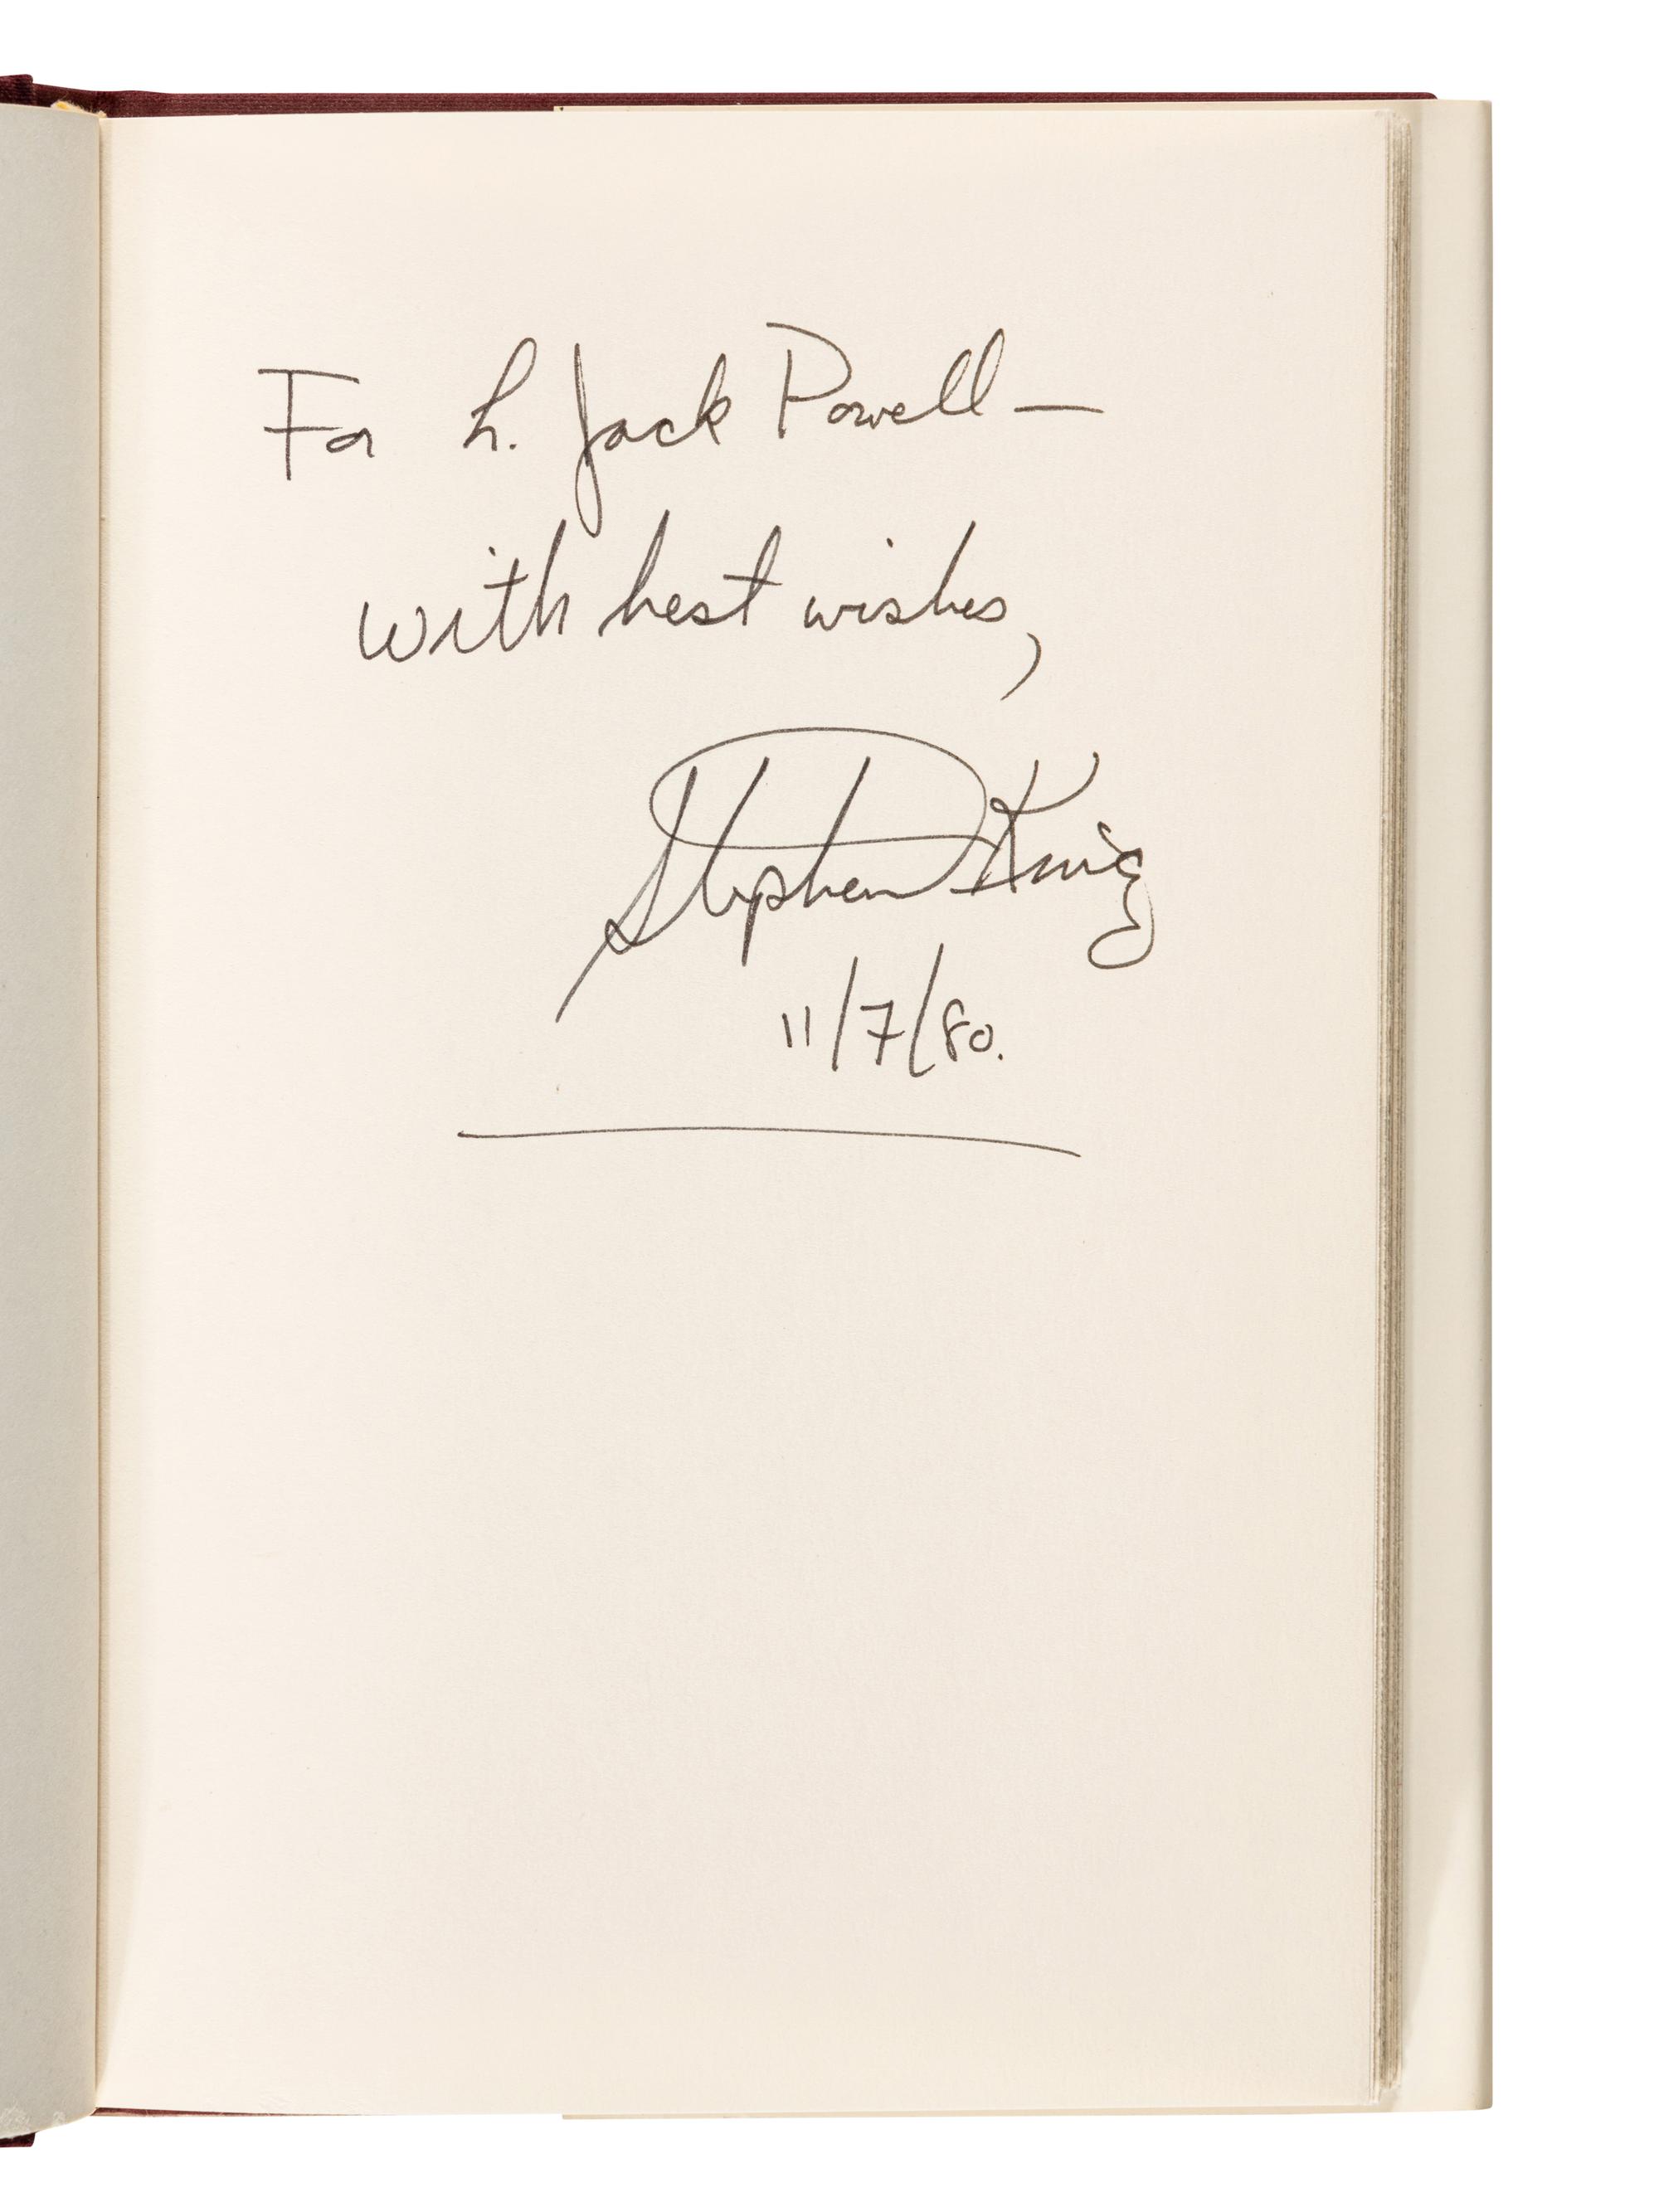 For L. Jack Powell —
with best wishes,
Stephen King
11/7/80.